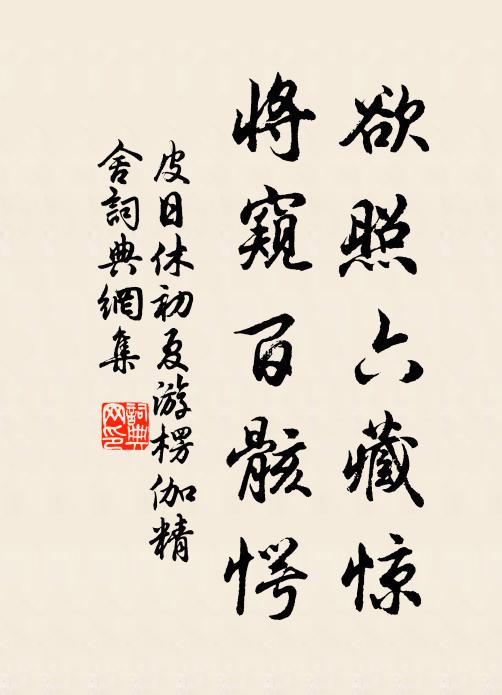 欲照六藏惊
将窥百骸愕
皮日休初夏游楞伽精
舍詞典網集
詞典
网印